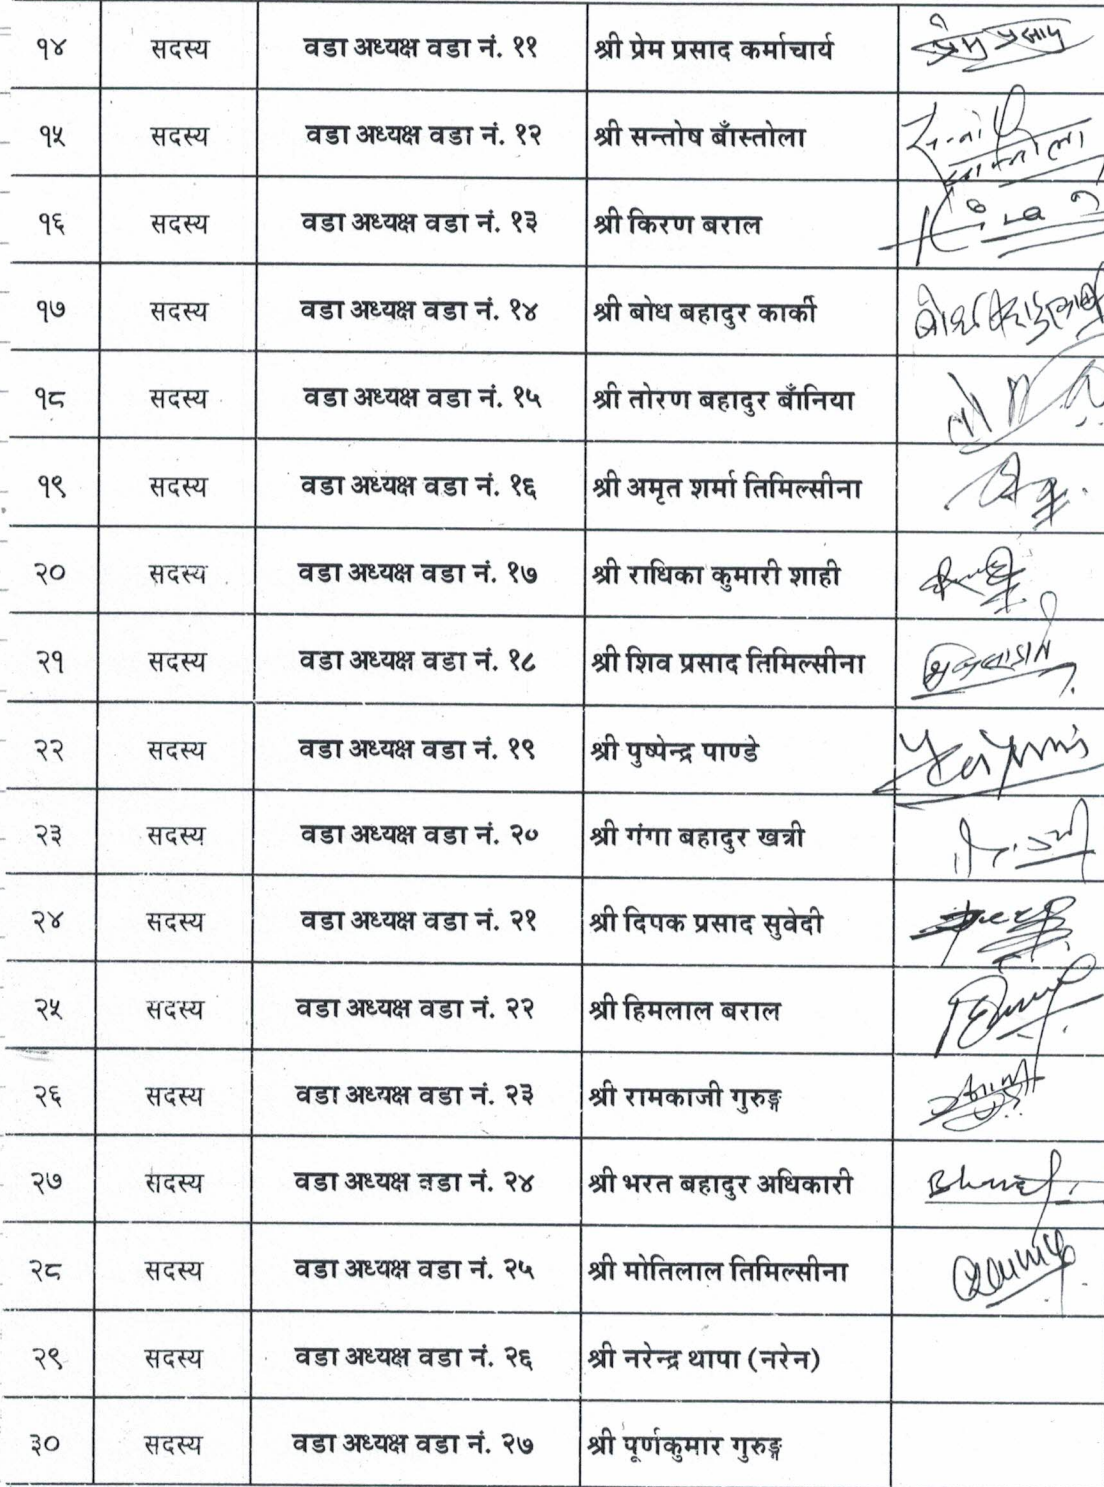 १४ सदस्य वडा अध्यक्ष वडा नं. ११ श्री प्रेम प्रसाद कर्माचार्य प्रेम प्रसाद
१५ सदस्य वडा अध्यक्ष वडा नं. १२ श्री सन्तोष बाँस्तोला
१६ सदस्य वडा अध्यक्ष वडा नं. १३ श्री किरण बराल
१७ सदस्य वडा अध्यक्ष वडा नं. १४ श्री बोध बहादुर कार्की
१८ सदस्य वडा अध्यक्ष वडा नं. १५ श्री तोरण बहादुर बाँनिया
१९ सदस्य वडा अध्यक्ष वडा नं. १६ श्री अमृत शर्मा तिमिल्सीना
२० सदस्य वडा अध्यक्ष वडा नं. १७ श्री राधिका कुमारी शाही
२१ सदस्य वडा अध्यक्ष वडा नं. १८ श्री शिव प्रसाद तिमिल्सीना
२२ सदस्य वडा अध्यक्ष वडा नं. १९ श्री पुष्पेन्द्र पाण्डे
२३ सदस्य वडा अध्यक्ष वडा नं. २० श्री गंगा बहादुर खत्री
२४ सदस्य वडा अध्यक्ष वडा नं. २१ श्री दिपक प्रसाद सुवेदी
२५ सदस्य वडा अध्यक्ष वडा नं. २२ श्री हिमलाल बराल
२६ सदस्य वडा अध्यक्ष वडा नं. २३ श्री रामकाजी गुरुङ्ग
२७ सदस्य वडा अध्यक्ष वडा नं. २४ श्री भरत बहादुर अधिकारी Bharat
२८ सदस्य वडा अध्यक्ष वडा नं. २५ श्री मोतिलाल तिमिल्सीना
२९ सदस्य वडा अध्यक्ष वडा नं. २६ श्री नरेन्द्र थापा (नरेन)
३० सदस्य वडा अध्यक्ष वडा नं. २७ श्री पूर्णकुमार गुरुङ्ग